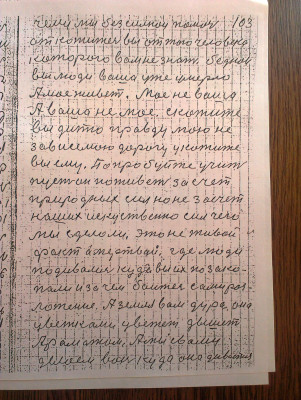 чему мы без силной помочь 103
от кожитися вы от того человека
которого вам не знать бедной
вы люди ваша уже умерло
А мое живет. Мое не ваша
А ваша не мое, скажите
вы дитю правду мою не
зависемою дорогу укажите
вы ему. Попробуйте учит
пуст он поживет за счет
природных сил но не за счет
наших искуственно сил чего
мы сделали, это не живой
факт а жертвой, где люди
подивались куда вы их позако-
пали и за чем боитес самирас
ложение. А земля вам дура, она
цветками цветет дышит
Ароматом, А
делаем вам куда она девается